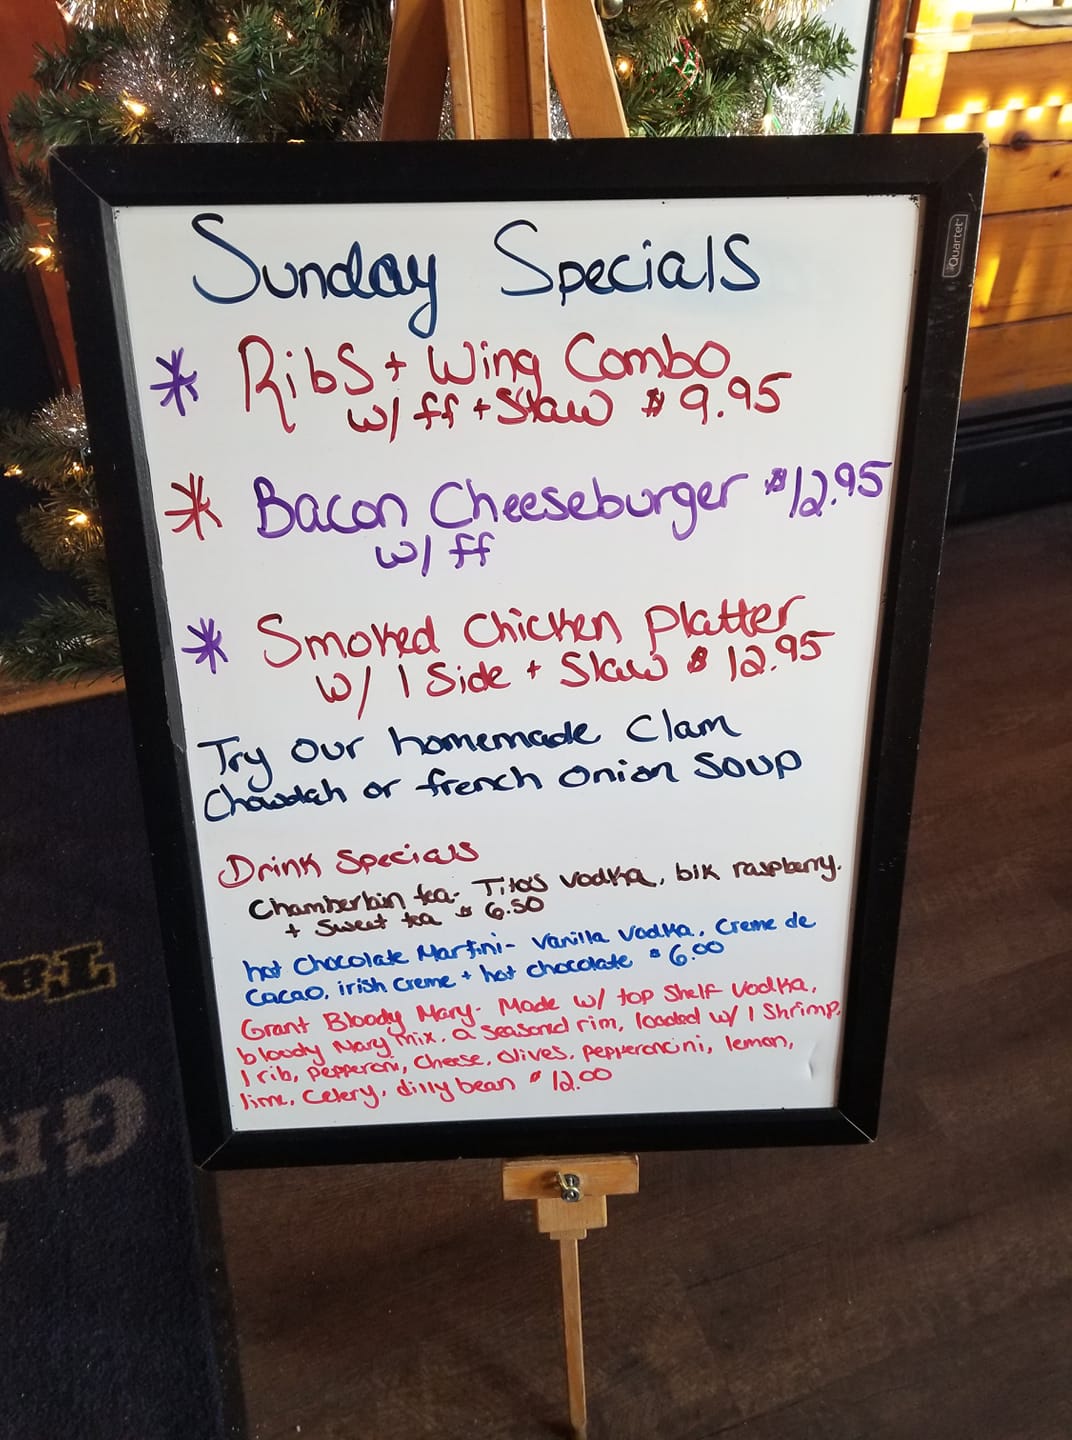 Quartet
Sunday Specials
* Ribs + Wing Combo
w/ ff + Slaw $9.95
* Bacon Cheeseburger $12.95
w/ ff
* Smoked Chicken Platter
w/ 1 Side + Slaw $12.95
Try our homemade Clam
Chowdah or french onion Soup
Drink Specials
Chamberlain tea- Tito's vodka, blk raspberry,
+ Sweet tea $6.50
hot Chocolate Martini- Vanilla Vodka, Creme de
Cacao, irish creme + hot chocolate $6.00
Grant Bloody Mary- Made w/ top Shelf Vodka,
bloody Mary mix, a seasoned rim, loaded w/ 1 Shrimp,
1 rib, pepperoni, cheese, olives, pepperoncini, lemon,
lime, Celery, dilly bean $12.00